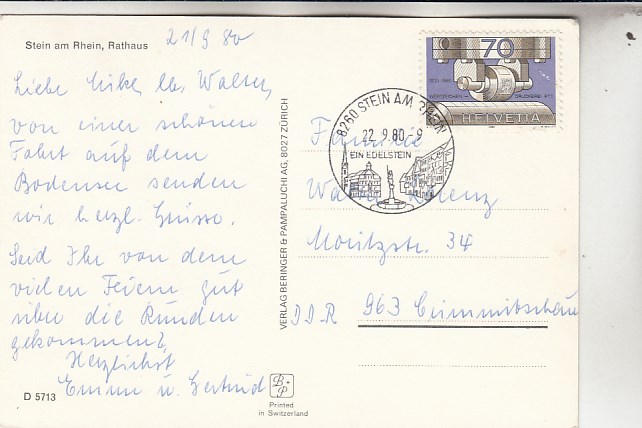 Stein am Rhein, Rathaus
21/9 80
Liebe Erika, lb. Walter,
von einer schönen
Fahrt auf dem
Bodensee senden
wir herzl. Grüsse.
Seid Ihr von dem
vielen Feiern gut
über die Runden
gekommen?
Herzlichst
Emmi u. Gertrud
D 5713
VERLAG BERINGER & PAMPALUCHI AG, 8027 ZÜRICH
B+P
Printed
in Switzerland
70
WERTZEICHEN-
DRUCKEREI PTT
HELVETIA
8260 STEIN AM RHEIN
22.9.80-9
EIN EDELSTEIN
Familie
Walter Lorenz
Moritzstr. 34
DDR 963 Crimmitschau